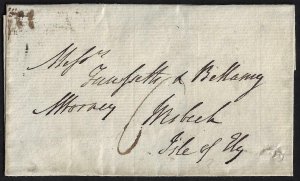 Messrs
& Bellamy
Attorney Wisbech
Isle of Ely